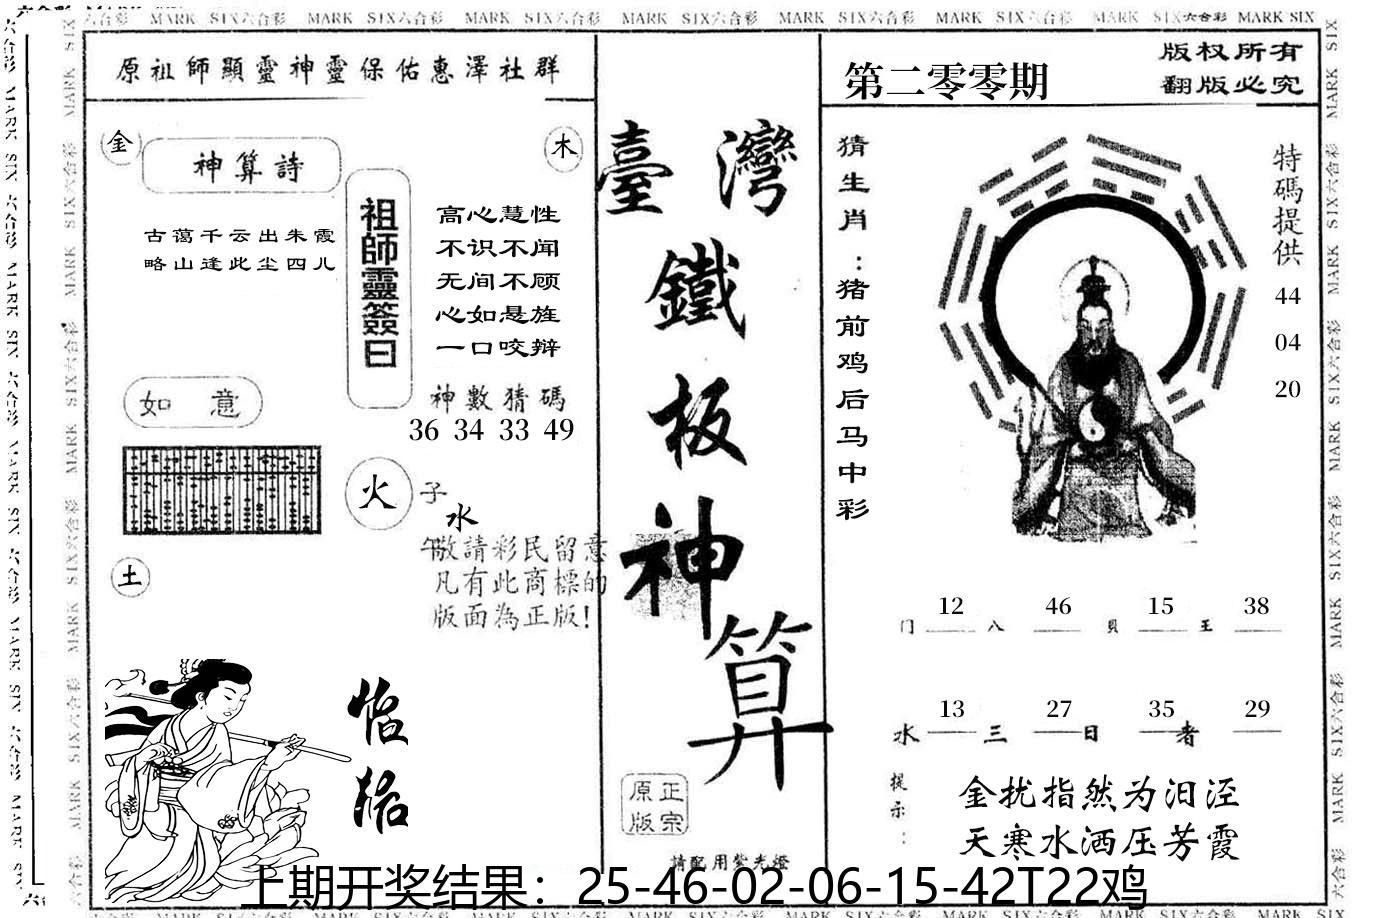 MARK SIX六合彩 MARK SIX六合彩 MARK SIX六合彩 MARK SIX六合彩 MARK SIX六合彩 MARK SIX六合彩 MARK SIX六合彩 MARK SIX
原祖師顯靈神靈保佑惠澤社群
第二零零期
版权所有
翻版必究
金
木
神算詩
古蔼千云出朱霞
略山逢此尘四儿
祖師靈簽曰
高心慧性
不识不闻
无间不顾
心如悬旌
一口咬辩
神數猜碼
36 34 33 49
如意
火
子
水
午
土
敬請彩民留意
凡有此商標的
版面為正版!
臺灣
鐵
板
神
算
正宗
原版
請配用紫光燈
猜生肖：猪前鸡后马中彩
特碼提供
44
04
20
12 46 15 38
门 八 貝 王
13 27 35 29
水 三 日 者
提示：
金扰指然为汨泾
天寒水洒压芳霞
上期开奖结果：25-46-02-06-15-42T22鸡